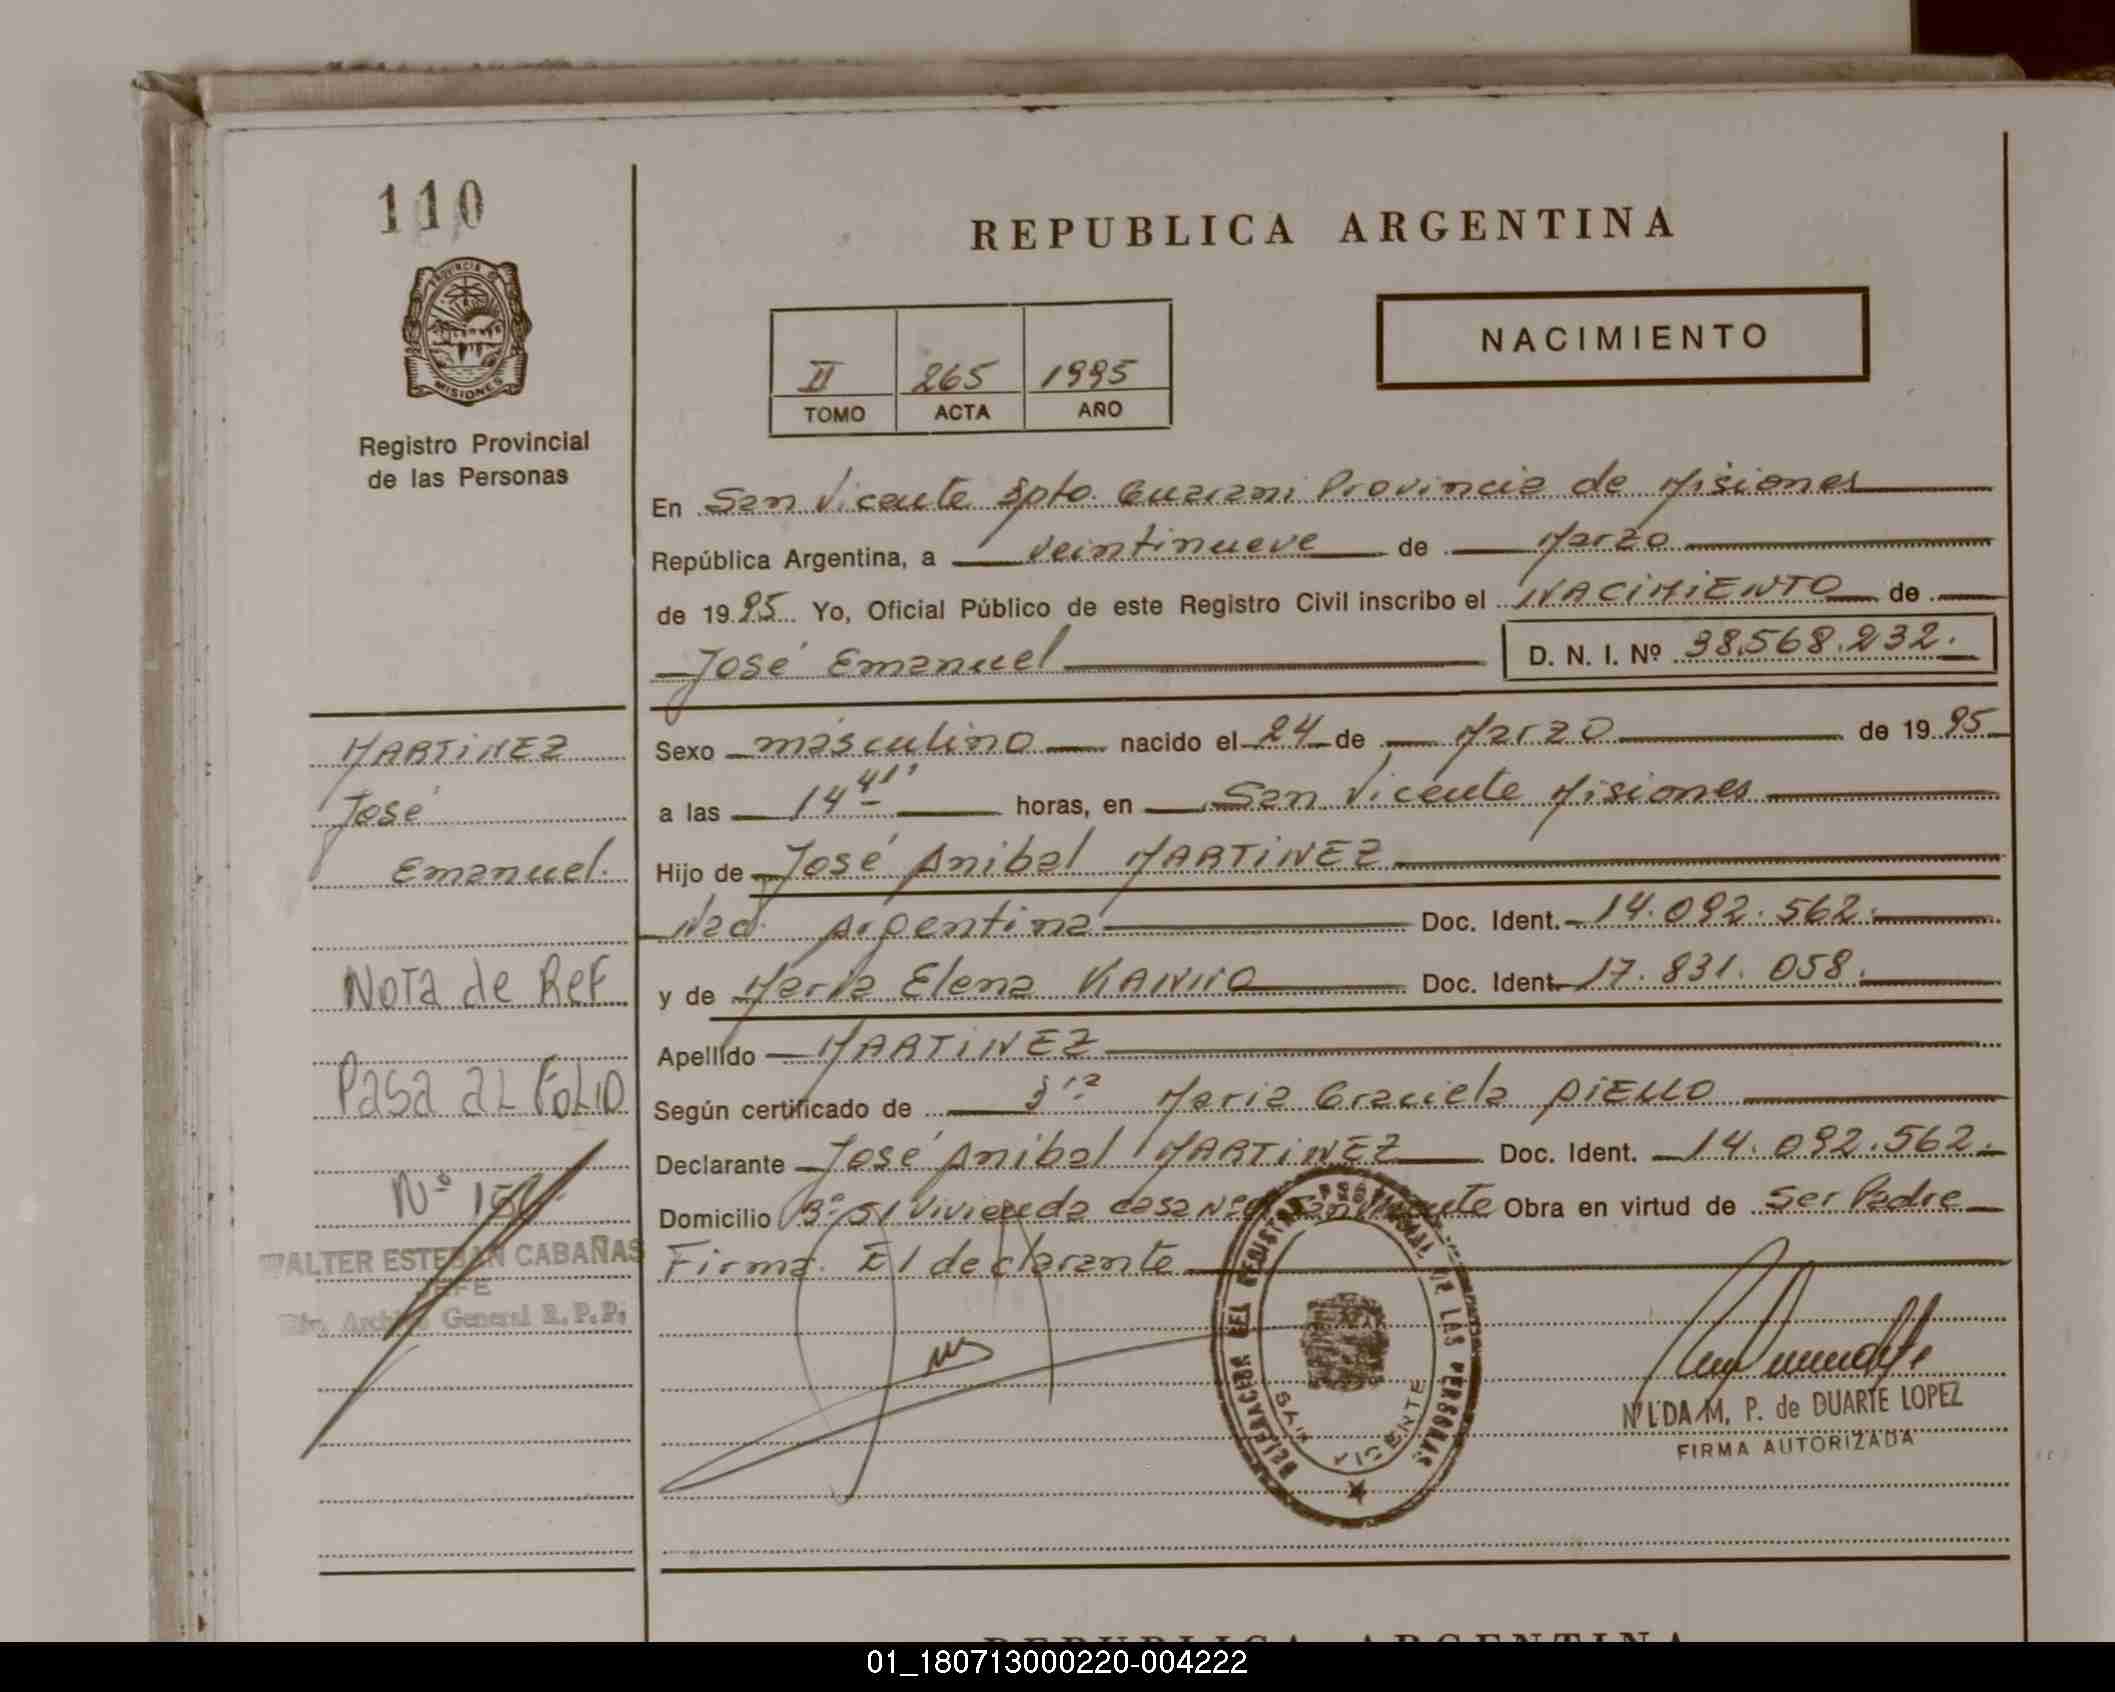 110
PROVINCIA DE
MISIONES
Registro Provincial
de las Personas
REPUBLICA ARGENTINA
NACIMIENTO
II 265 1995
TOMO ACTA AÑO
En San Vicente Dpto. Guarani Provincia de Misiones
República Argentina, a veintinueve de Marzo
de 1995 Yo, Oficial Público de este Registro Civil inscribo el NACIMIENTO de
José Emanuel D. N. I. Nº 38.568.232.
Sexo másculino nacido el 24 de Marzo de 1995
a las 14 41' horas, en San Vicente Misiones
Hijo de José Anibal MARTINEZ
Nac. Argentina Doc. Ident. 14.092.562.
y de Maria Elena Doc. Ident. 17.831.058.
Apellido MARTINEZ
Según certificado de Maria Graciela
Declarante José Anibal MARTINEZ Doc. Ident. 14.092.562.
Domicilio Bº 51 Vivienda casa Nº San Vicente Obra en virtud de Ser Padre
Firma. El declarante
MARTINEZ
José
Emanuel.
Nota de Ref
Pasa al Folio
Nº
WALTER ESTEBAN CABAÑAS
JEFE
Archivo General R.P.P.
DELEGACION DEL REGISTRO PROVINCIAL DE LAS PERSONAS
SAN VICENTE
NILDA M. P. de DUARTE LOPEZ
FIRMA AUTORIZADA
REPUBLICA ARGENTINA
01_180713000220-004222